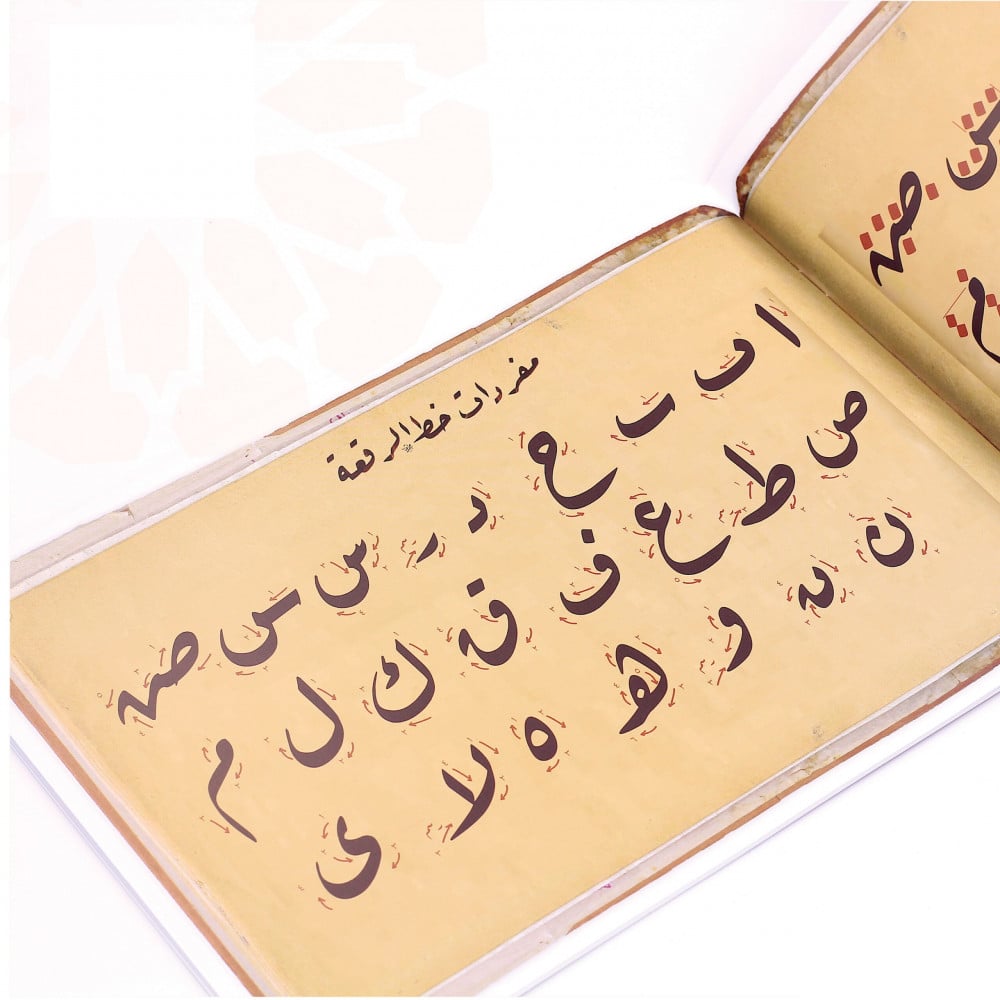 مفردات خط الرقعة
ا ٮ ٮ ح د ر س س ص
ص ط ع ف ق ك ل م
ن ن و ه ه لا ى